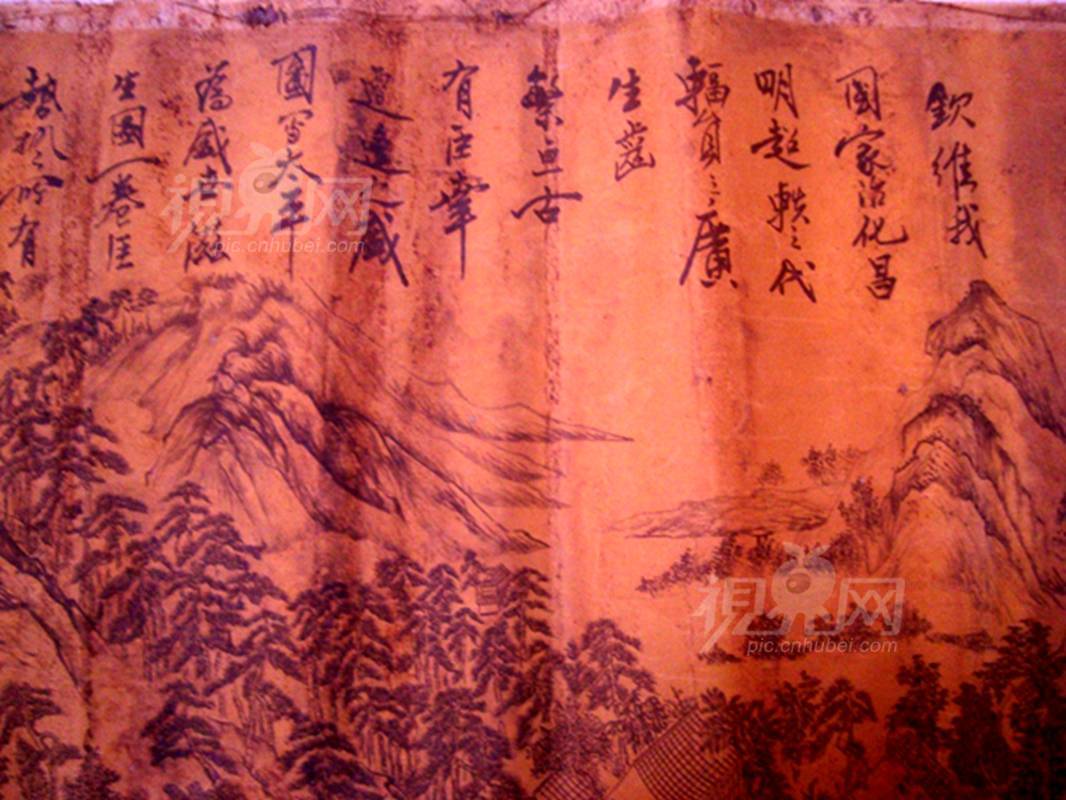 欽維我
國家治化昌
明超軼三代
輻員之廣
生齒
繁亘古
有臣幸
遭逢盛
國寫太平
為盛世滋
生圖一卷臣
執
所有
视界网
pic.cnhubei.com
视界网
pic.cnhubei.com